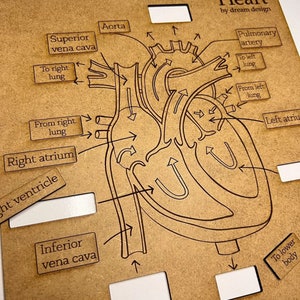 Heart
by dream design
Aorta
Superior
vena cava
Pulmonary
artery
To right
lung
To left
lung
From left
lung
From right
lung
Left atrium
Right atrium
ght ventricle
Inferior
vena cava
To lower
body